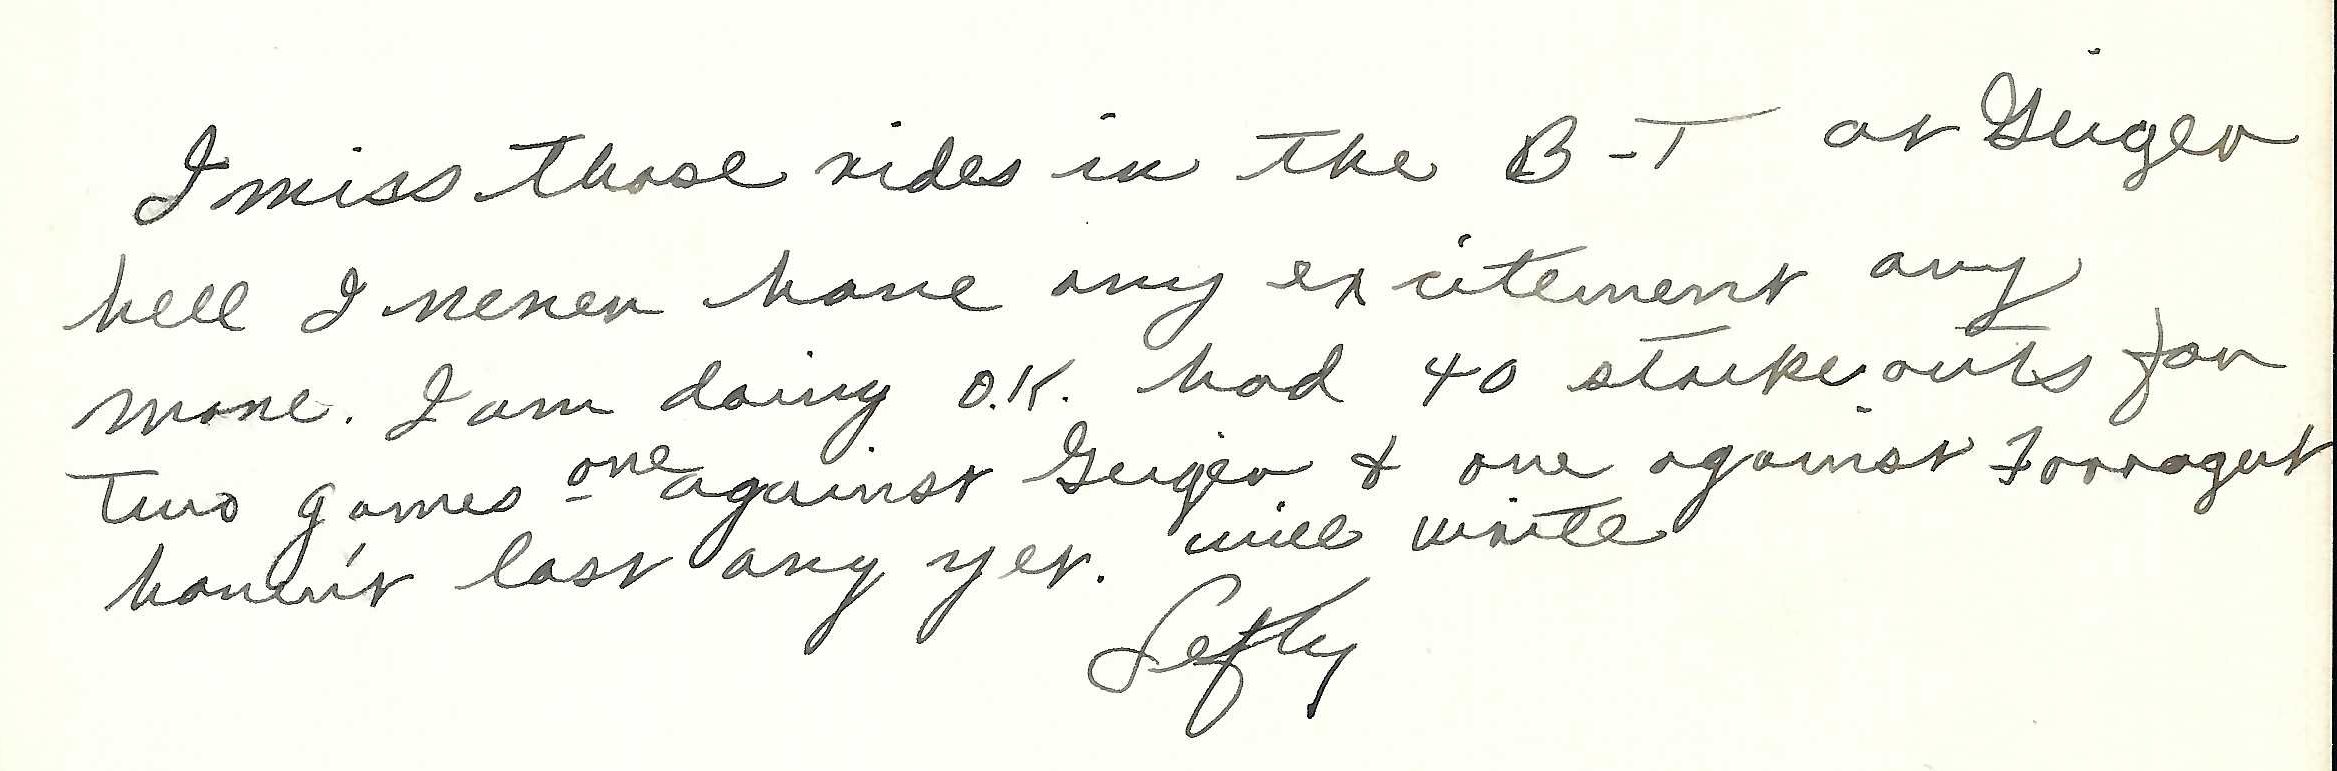 I miss those rides in the B-T at Geiger
hell I never have any excitement any
more. I am doing O.K. had 40 strikeouts for
two games one against Geiger & one against Farragut
haven't lost any yet. will write
Lefty